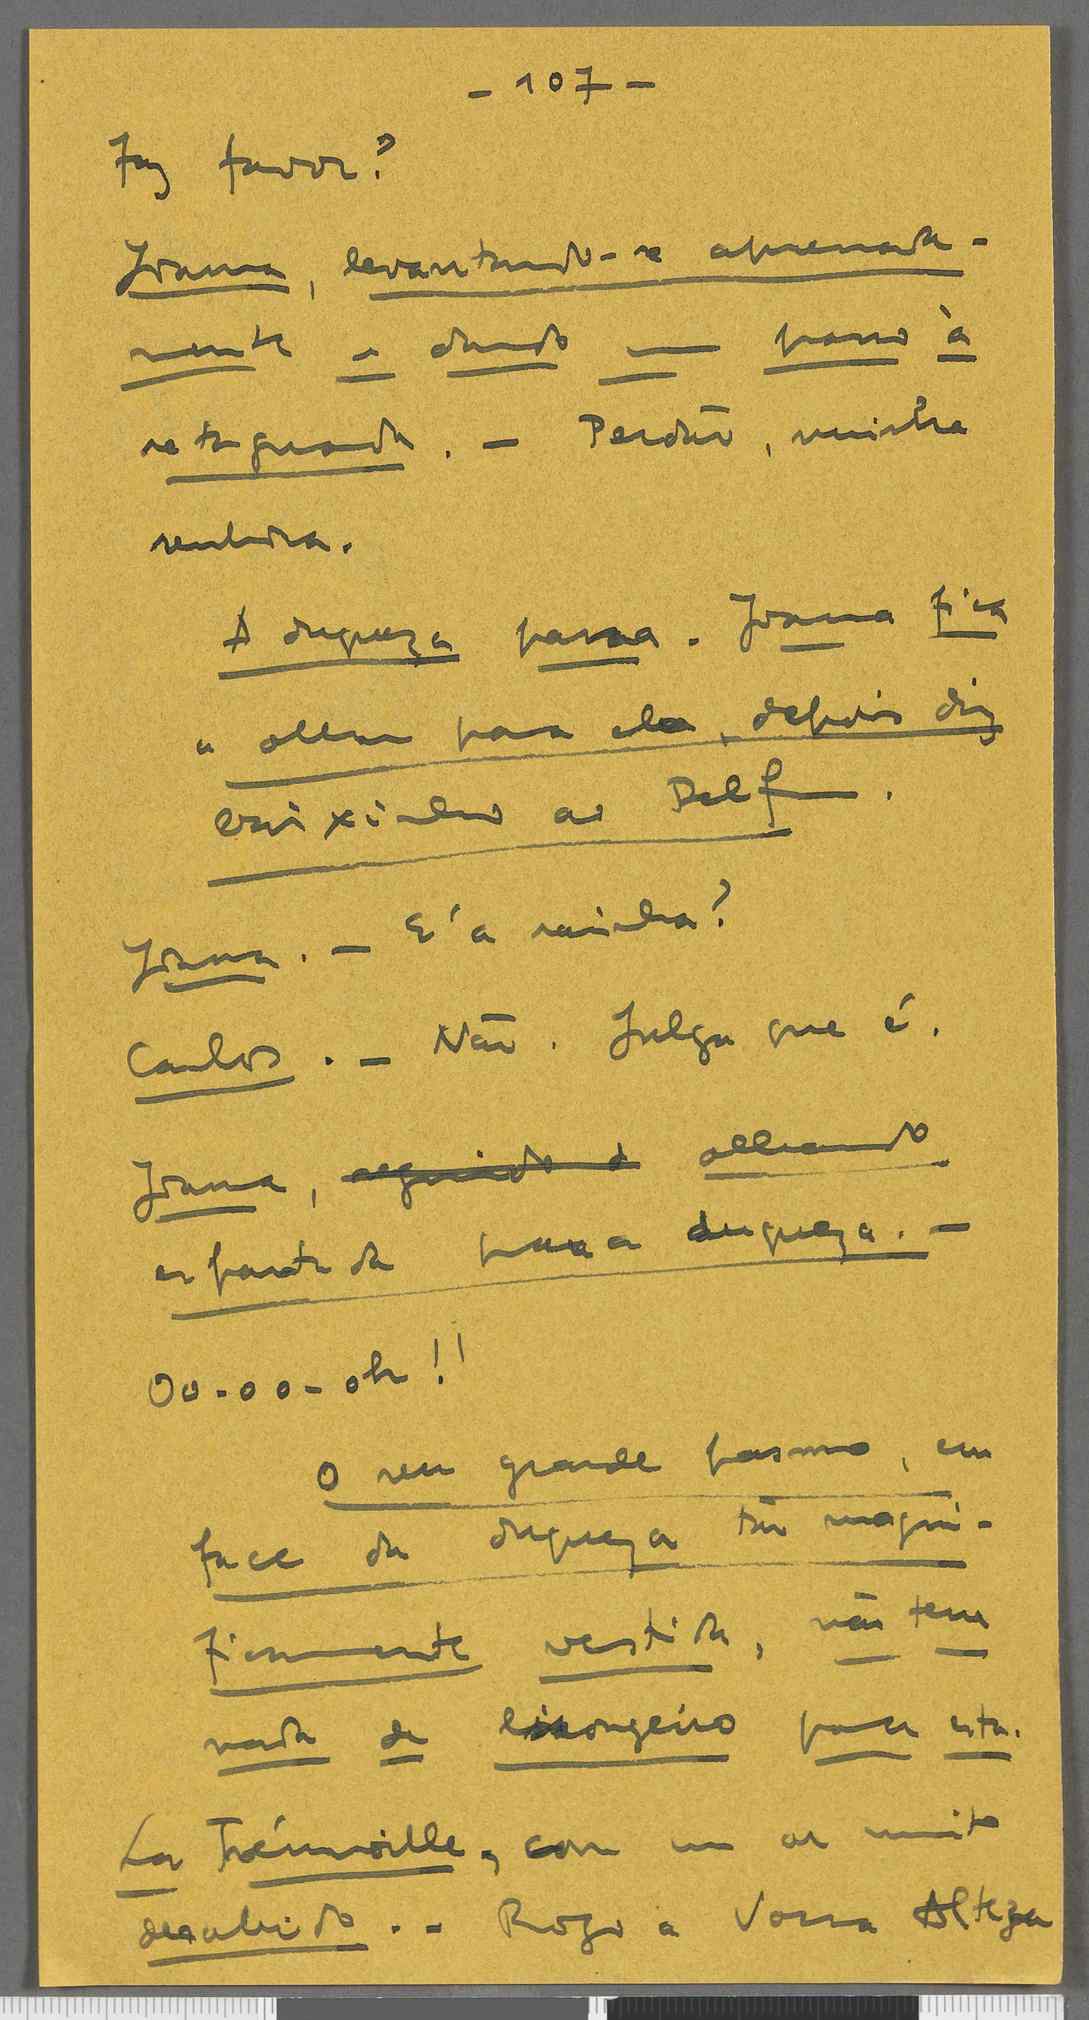 - 107 -
Faz favor?
Joana, levantando-se apressada-
mente e dando um passo à
retaguarda. - Perdão, minha
senhora.
A duqueza passa. Joana fica
a olhar para ela, depois diz
baixinho ao Delfim.
Joana. - E' a rainha?
Carlos. - Não. Julga que é.
Joana, seguindo a olhando
espantada para a duqueza. -
Oo-oo-oh!!
O seu grande pasmo, em
face da duqueza tão magni-
ficamente vestida, não tem
nada de lisongeiro para esta.
La Trémoille, com um ar muito
desabrido. - Rogo a Vossa Alteza